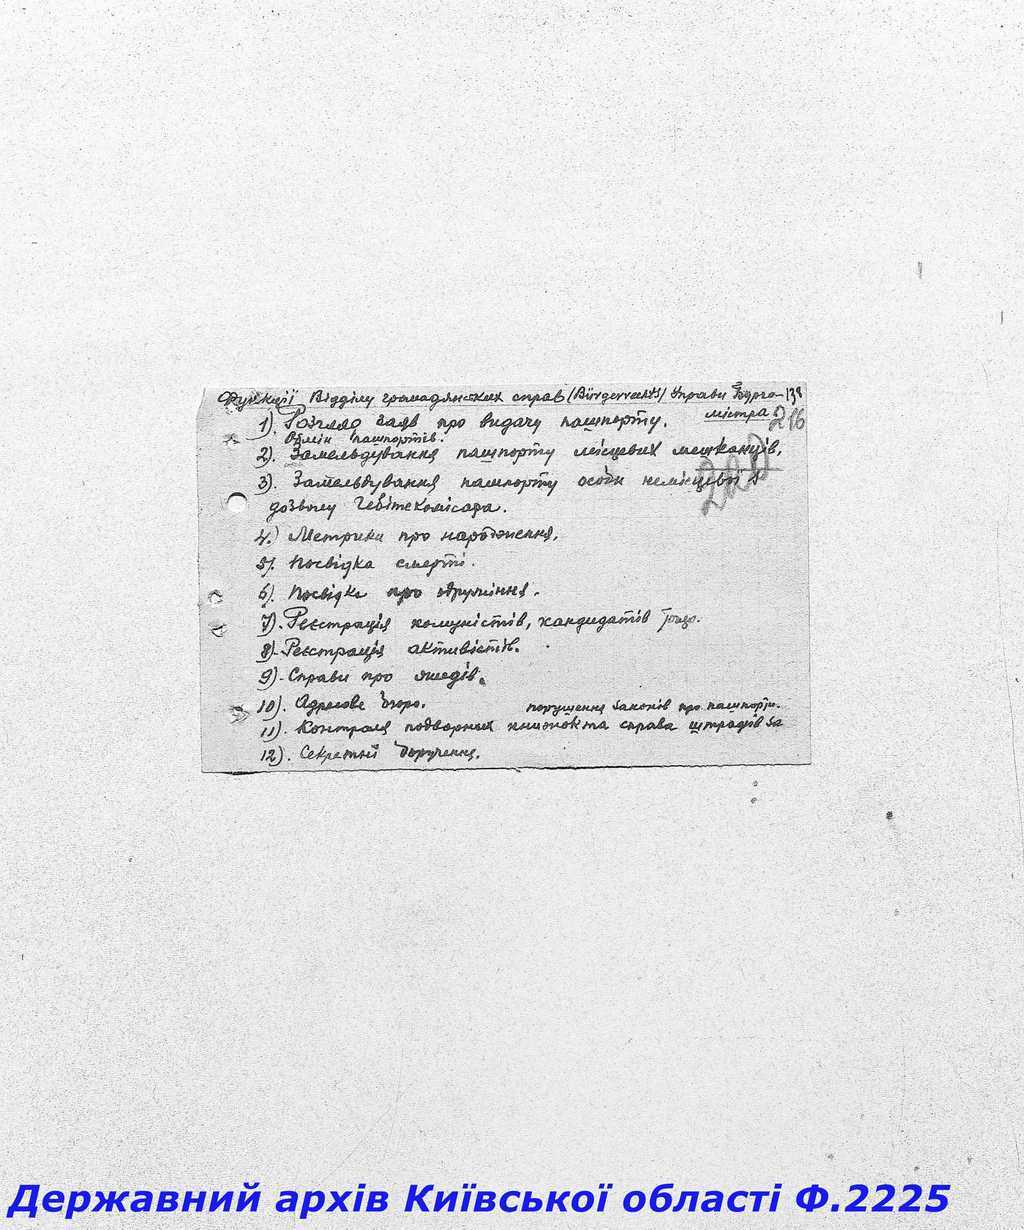 Функції Відділу громадянських справ (Bürgerrecht) Управи Бурго- 138
містра 216
1). Розгляд заяв про видачу пашпорту.
Обмін пашпортів.
2). Замельдування пашпорту місцевих мешканців.
3). Замельдування пашпорту особи немісцевої з
дозволу Гебітскомісара.
4.) Метрики про народження.
5). Посвідка смерті.
6). Посвідки про одруження.
7). Реєстрація комуністів, кандидатів тощо.
8). Реєстрація активістів.
9). Справи про жидів.
10). Адресове бюро.
порушення законів про пашпорти.
11). Контроля подворних книжок та справа штрафів за
12). Секретні доручення.
Державний архів Київської області Ф.2225